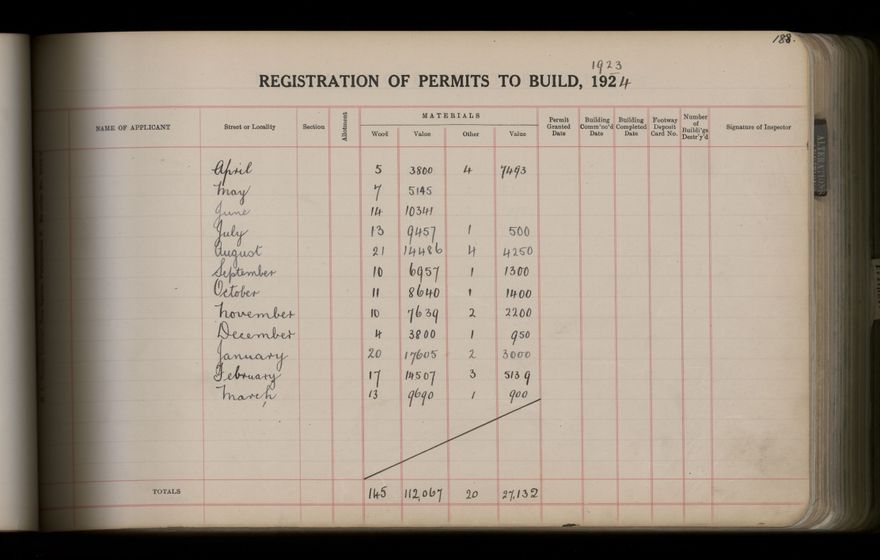 188.
1923
REGISTRATION OF PERMITS TO BUILD, 1924
NAME OF APPLICANT Street or Locality Section Allotment MATERIALS Wood Value Other Value Permit Granted Date Building Comm'nc'd Date Building Completed Date Footway Deposit Card No. Number of Buildi'gs Destr'y'd Signature of Inspector
April 5 3800 4 7493
May 7 5145
June 14 10341
July 13 9457 1 500
August 21 14486 4 4250
September 10 6957 1 1300
October 11 8640 1 1400
November 10 7639 2 2200
December 4 3800 1 950
January 20 17605 2 3000
February 17 14507 3 5139
March 13 9690 1 900
TOTALS 145 112,067 20 27,132